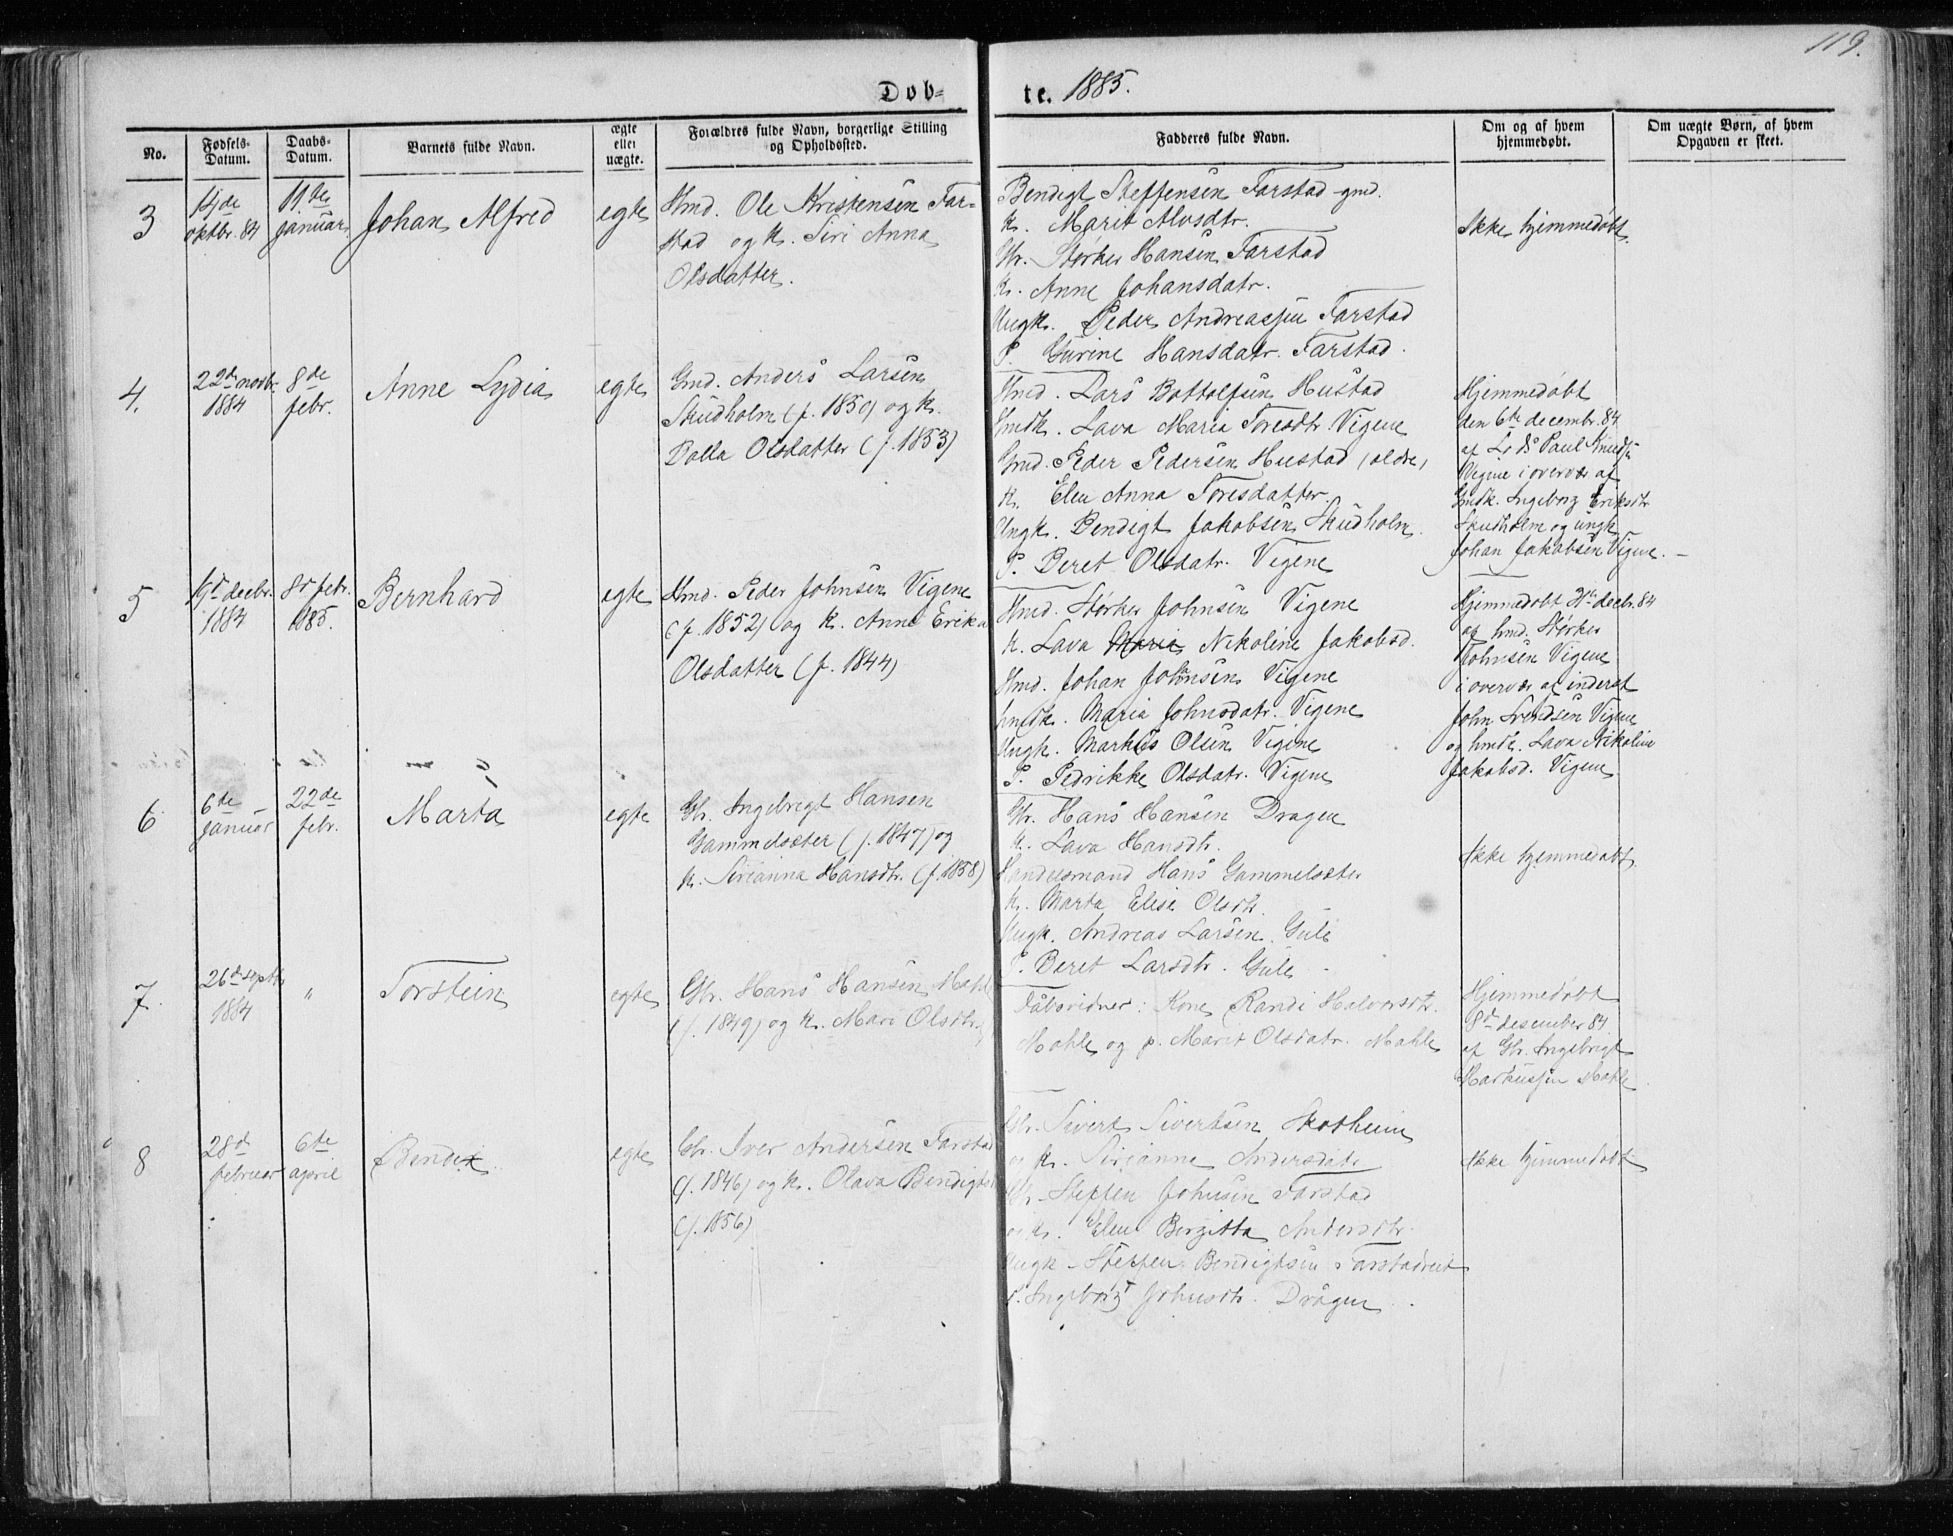 119.
Døb-
te. 1885.
No.
Fødsels-
Datum.
Daabs-
Datum.
Barnets fulde Navn.
ægte
eller
uægte.
Forældres fulde Navn, borgerlige Stilling
og Opholdssted.
Fadderes fulde Navn.
Om og af hvem
hjemmedøbt.
Om uægte Børn, af hvem
Opgaven er skeet.
3
oktbr. 84
11te
januar.
Johan Alfred
egte
Hmd. Ole Kristensen Far-
stad og k. Siri Anna
Olsdatter.
Bendigt Steffensen Farstad gmd.
k. Marit Alvsdtr.
Gbr. Størker Hansen Farstad
k. Anne Johansdatr.
Ungk. Peder Andreassen Farstad
P. Gurine Hansdatr. Farstad.
Ikke hjemmedøbt.
4.
22d novbr.
1884
8de
febr.
Anne Lydia
egte
Gmd. Anders Larsen
Skudholm (f. 1850) og k.
Dolla Olsdatter (f. 1853)
Hmd. Lars Bottolfsen Hustad
Gmdk. Lava Maria Toresdtr. Vigene
Gmd. Peder Pedersen Hustad (ældre)
k. Elen Anna Toresdatter.
Ungk. Bendigt Jakobsen Skudholm.
P. Beret Olsdatr. Vigene
Hjemmedøbt
den 6te decembr. 84
af Paul Knudsen
Vigene i overvær af
Gmdk. Ingeborg Eriksdtr
Skudholm og ungk.
Johan Jakobsen Vigene.
5
decbr.
1884
8d febr.
1885.
Bernhard
egte
Hmd. Peder Johnsen Vigene
(f. 1852) og k. Anne Erika
Olsdatter (f. 1844)
Hmd. Størker Johnsen Vigene
k. Lava Maria Nikoline Jakobsd.
Hmd. Johan Johnsen Vigene
hmdk. Maria Johnsdatr. Vigene
Ungk. Markus Olsen Vigene
P. Pedrikke Olsdatr. Vigene
Hjemmedøbt decbr. 84
af hmd. Størker
Johnsen Vigene
i overvær af inderst
John Svendsen Vigene
og hmdk. Lava Nikoline
Jakobsd. Vigene
6
6te
januar
22de
febr.
Marta
egte
Gbr. Ingebrigt Hansen
Gammelsæter (f. 1847) og
k. Sirianna Hansdtr. (f. 1858)
Gbr. Hans Hansen Dragen
k. Lava Hansdtr.
Handelsmand Hans Gammelsæter
k. Marta Elise Olsdtr.
Ungk. Andreas Larsen Gule
P. Beret Larsdtr. Gule
Ikke hjemmedøbt.
7.
26d septbr
1884
"
Torstein
egte
Gbr. Hans Hansen Mahle
(f. 1849) og k. Mari Olsdtr.
Dåbsvidner: Kone Randi Halvorsdtr.
Mahle og p. Marit Olsdatr. Mahle
Hjemmedøbt
8d desember 84
af Gbr. Ingebrigt
Markussen Mahle
8
28d
februar
6te
april
Bendix
egte
Gbr. Iver Andersen Farstad
(f. 1846) og k. Olava Bendigtsd
(f. 1856)
Gbr. Sivert Sivertsen Skotheim
og k. Sirianne Andersdatr
Gbr. Steffen Johnsen Farstad
og k. Elen Birgitta Andersdtr.
Ungk. Steffen Bendigtsen Farstadreit
P. Ingeborg Johnsdtr. Drågen.
Ikke hjemmedøbt